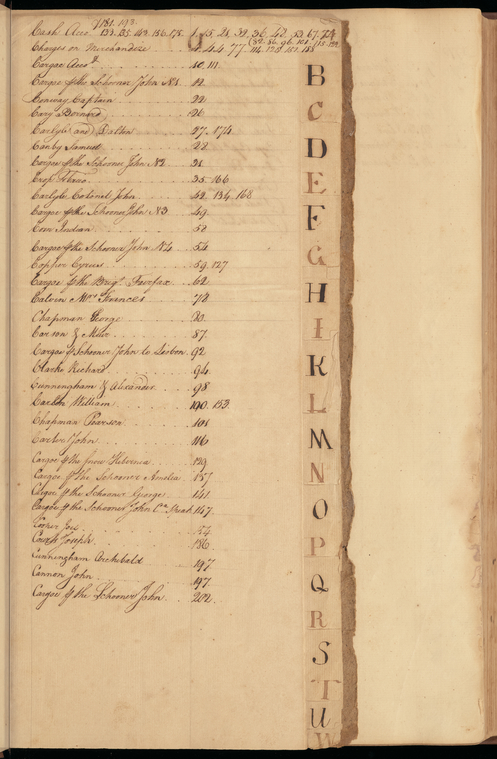 181. 193.
Cash Acco 133. 135. 143. 156. 175. 1. 15. 28. 32. 36. 40. 53. 67. 72
Charges on Merchandize 4. 44. 77. 114. 128. 151. 188
Cargoe Accot 10. 111.
Cargoe of the Schooner John No1 12.
Conway Captain 22.
Cary Bernard 26
Carlyle and Dalton 27. 174
Canby Samuel 28
Cargoe of the Schooner John No2 31
Crop Tobaco 35. 166
Carlyle Colonel John 42. 134. 168
Cargoe of the Schooner John No3 49.
Corn Indian 52
Cargoe of the Schooner John No4 54
Copper Cyrus 59. 127
Cargoe of the Brigt Fairfax 62
Calvin Mrs
Chapman George
Carson & Muir 87.
Cargoe of Schooner John to Lisbon. 92
Clarke Richard 94
Cunningham & Alexander 98
Carlin William 100. 153
Chapman Pearson 101
Carter John 116
Cargoe of the Snow Hibernia 129
Cargoe of the Schooner Amelia 137
Cargoe of the Schooner George 141
Cargoe of the Schooner John 147
Cooper
Joseph 186
Cunningham Archibald 197
Cannon John 197
Cargoe of the Schooner John 202
B
C
D
E
F
G
H
I
K
L
M
N
O
P
Q
R
S
T
U
W